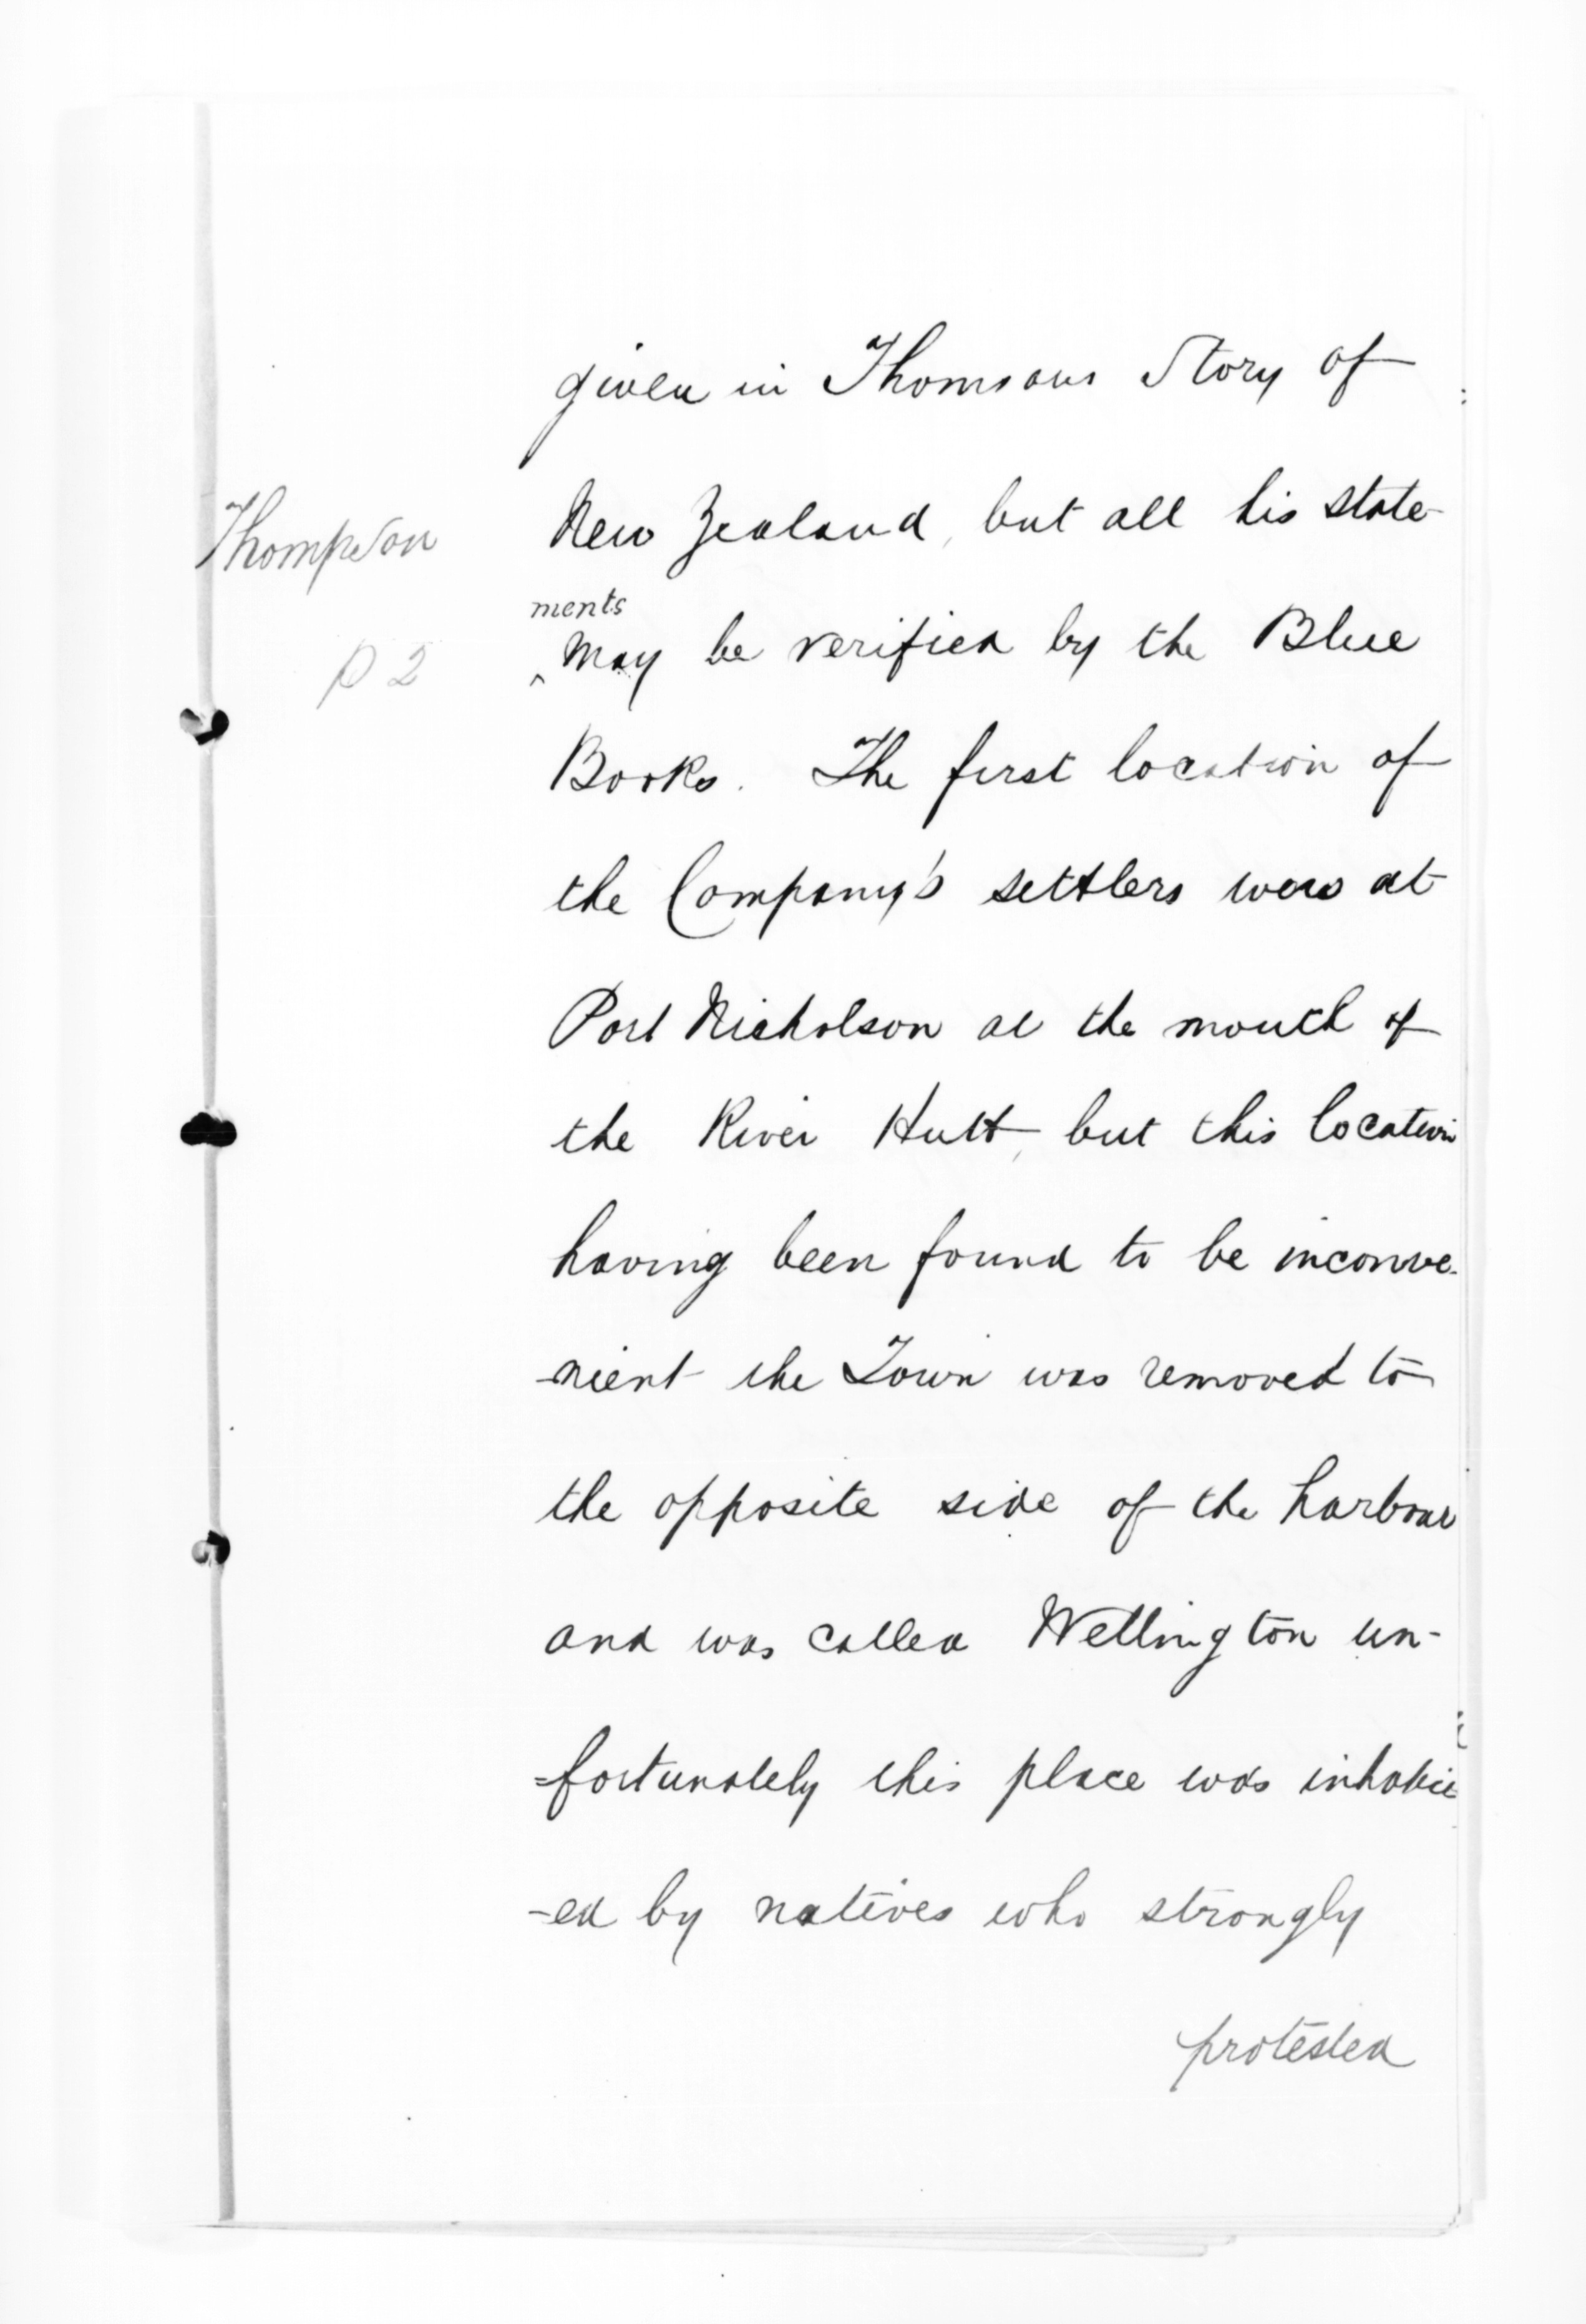 given in Thomsons Story of
New Zealand, but all his state-
Thompson
ments
^ may be verified by the Blue
p 2
Books. The first location of
the Company's settlers was at
Port Nicholson at the mouth of
the River Hutt, but this location
having been found to be inconve-
-nient the Town was removed to
the opposite side of the harbour
and was called Wellington un-
=fortunately this place was inhabit
-ed by natives who strongly
protested